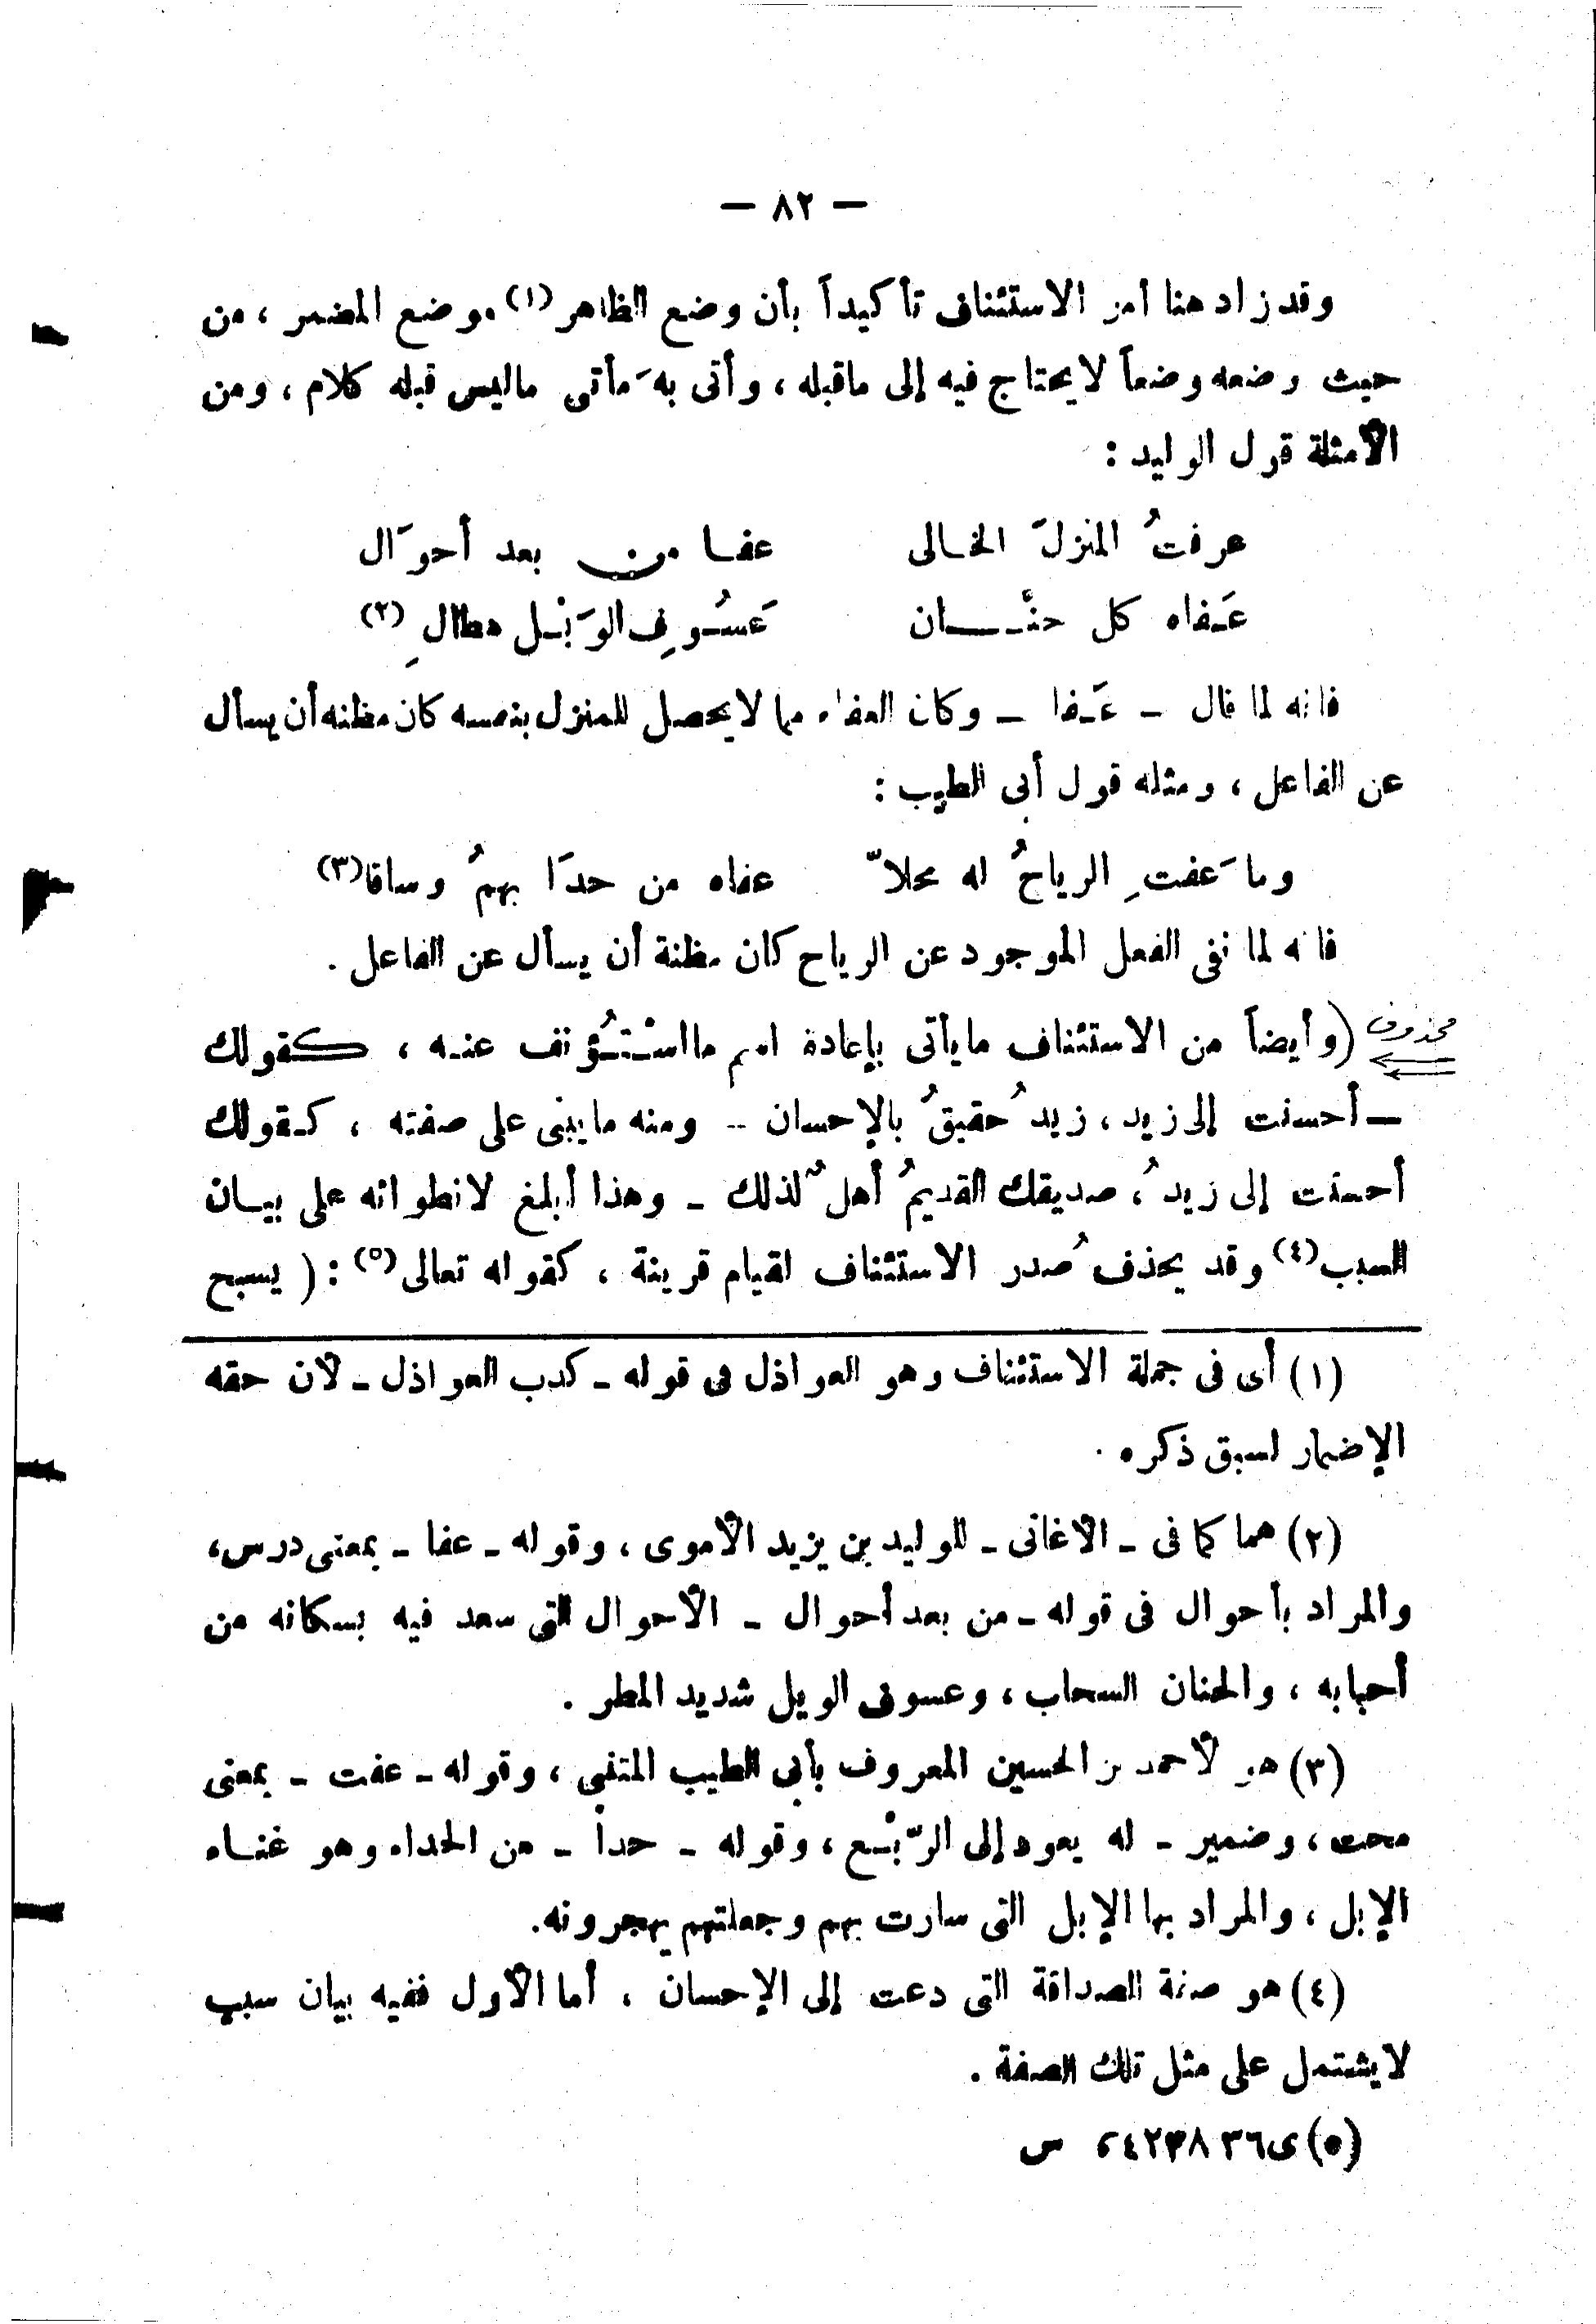 — ٨٢ —
وقد زاد هنا أمر الاستئناف تأكيداً بأن وضع الظاهر (١) موضع المضمر ، من
حيث وضعه وضعاً لا يحتاج فيه إلى ماقبله ، وأتى به مَأتى ماليس قبله كلام ، ومن
الأمثلة قول الوليد :
عرفتُ المنزلَ الخالى عفا من بعد أحوَال
عَفاه كل حنَّان عَسُوفِ الوَبْل هطالِ (٢)
فانه لما قال - عَفا - وكان العفاء مما لا يحصل للمنزل بنفسه كان مظنه أن يسأل
عن الفاعل ، ومثله قول أبى الطيب :
وما عَفتِ الرياحُ له محلاّ عفاه من حدَا بهمُ وساقا (٣)
فانه لما نفى الفعل الموجود عن الرياح كان مظنة أن يسأل عن الفاعل .
محذوف (وأيضاً من الاستئناف مايأتى بإعادة اسم مااسْتُؤنف عنه ، كقولك
— أحسنت إلى زيد ، زيدُ حقيقُ بالإحسان - ومنه مايبنى على صفته ، كقولك
أحسنت إلى زيد ، صديقك القديمُ أهلٌ لذلك - وهذا أبلغ لانطوائه على بيان
السبب (٤) وقد يحذف صُدر الاستئناف لقيام قرينة ، كقوله تعالى (٥) : ( يسبح
(١) أى فى جملة الاستئناف وهو العواذل فى قوله - كذب العواذل - لأن حقه
الإضمار لسبق ذكره .
(٢) هما كما فى - الأغانى - للوليد بن يزيد الأموى ، وقوله - عفا - بمعنى درس ،
والمراد بأحوال فى قوله - من بعد أحوال - الأحوال التى سعد فيه بسكانه من
أحبابه ، والحنان السحاب ، وعسوف الوبل شديد المطر .
(٣) هو لأحمد بن الحسين المعروف بأبى الطيب المتنبى ، وقوله - عفت - بمعنى
محت ، وضمير - له يعود إلى الرّبْع ، وقوله - حدا - من الحداء وهو غناء
الإبل ، والمراد بها الإبل التى سارت بهم وجعلتهم يهجرونه .
(٤) هو صفة الصداقة التى دعت إلى الإحسان . أما الأول ففيه بيان سبب
لا يشتمل على مثل تلك الصفة .
(٥) ى ٣٦ س